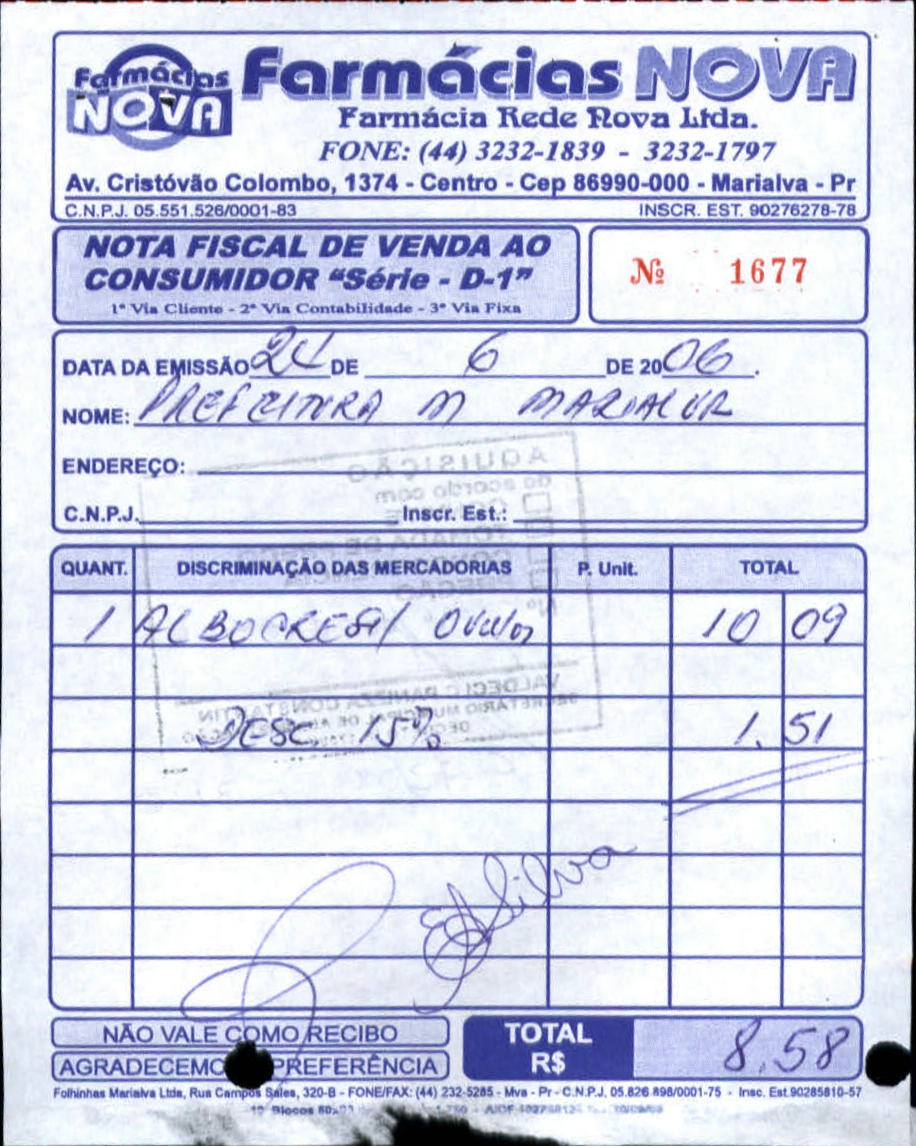 Farmácias NOVA
Farmácias NOVA
Farmácia Rede Nova Ltda.
FONE: (44) 3232-1839 - 3232-1797
Av. Cristóvão Colombo, 1374 - Centro - Cep 86990-000 - Marialva - Pr
C.N.P.J. 05.551.526/0001-83 INSCR. EST. 90276278-78
NOTA FISCAL DE VENDA AO
CONSUMIDOR “Série - D-1”
Nº 1677
1ª Via Cliente - 2ª Via Contabilidade - 3ª Via Fixa
DATA DA EMISSÃO 24 DE 6 DE 2006.
NOME: PREFEITURA M MARIALVA
ENDEREÇO:
C.N.P.J. Inscr. Est.:
AQUISIÇÃO
de acordo com
TOMADA DE PREÇO
QUANT. DISCRIMINAÇÃO DAS MERCADORIAS P. Unit. TOTAL
1 OVULOS 10 09
DESC 15% 1.51
Silva
NÃO VALE COMO RECIBO
AGRADECEMO PREFERÊNCIA
TOTAL
R$ 8.58
Folhinhas Marialva Ltda, Rua Campos Sales, 320-B - FONE/FAX: (44) 232-5285 - Mva - Pr - C.N.P.J. 05.826.898/0001-75 - Insc. Est.90285810-57